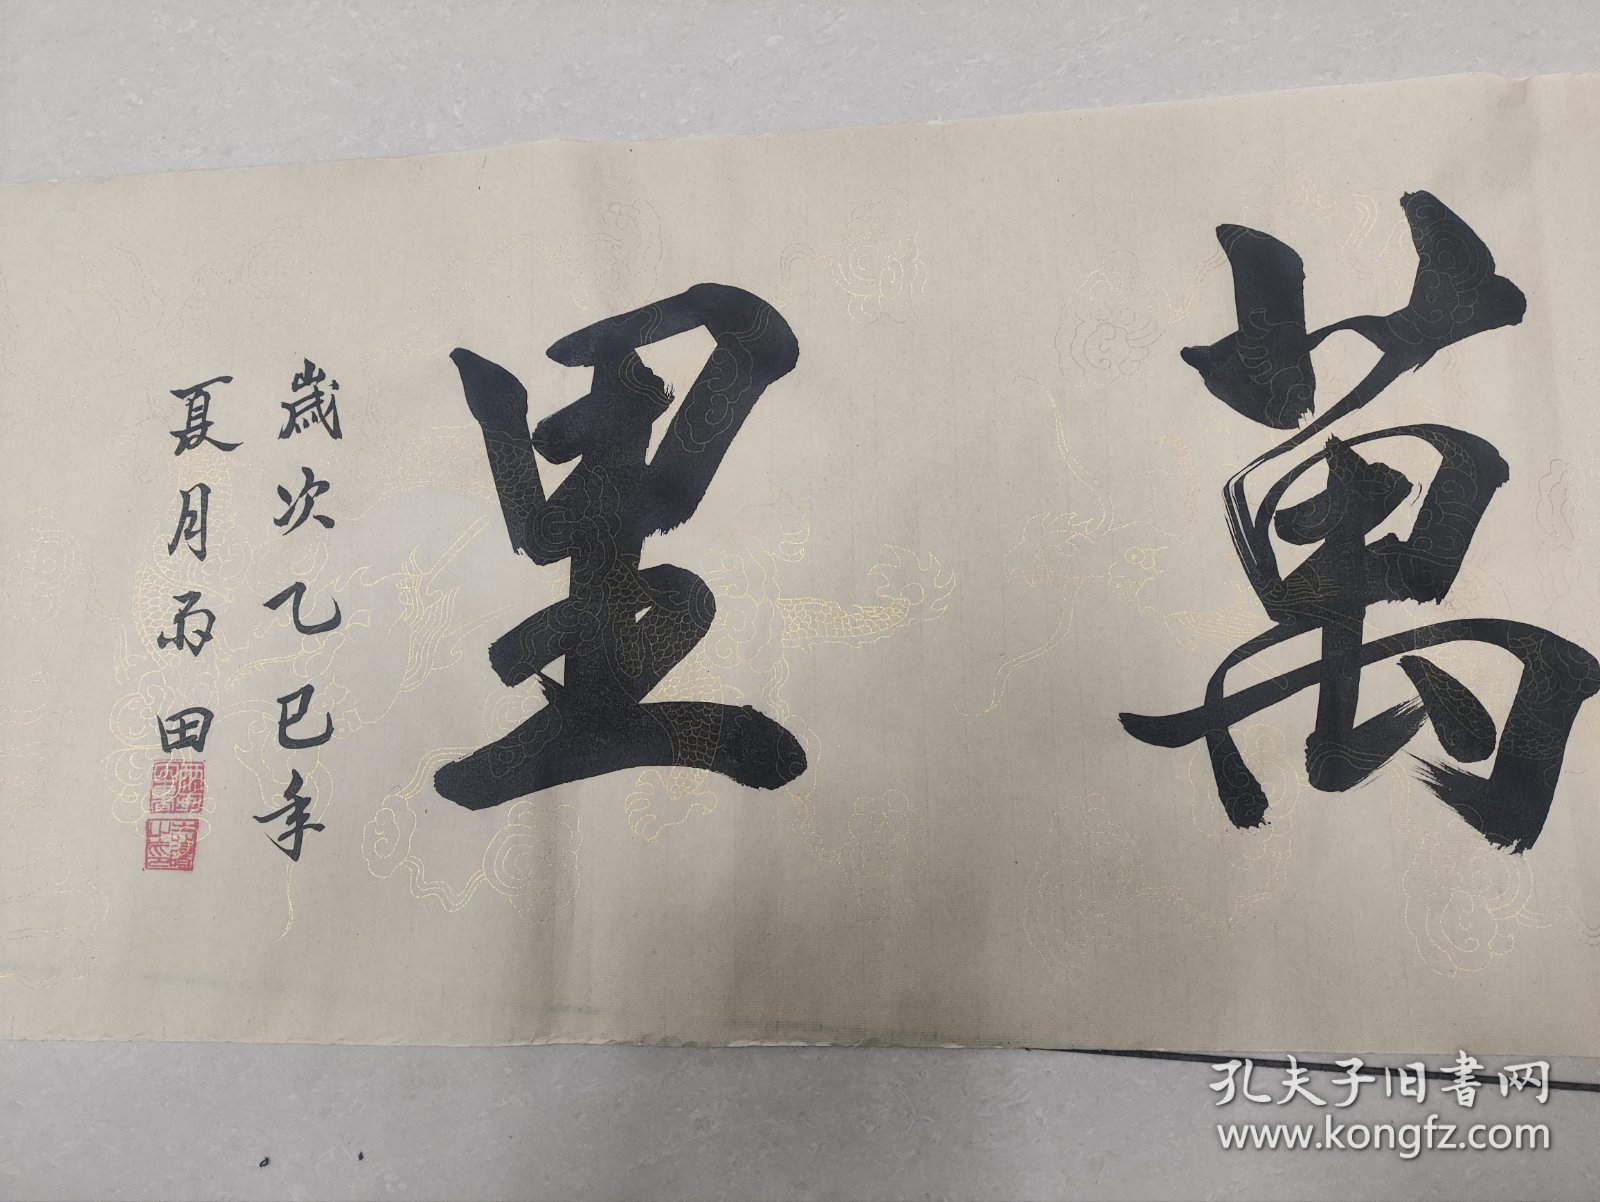 萬里
歲次乙巳年
夏月雨田
孔夫子旧书网
www.kongfz.com